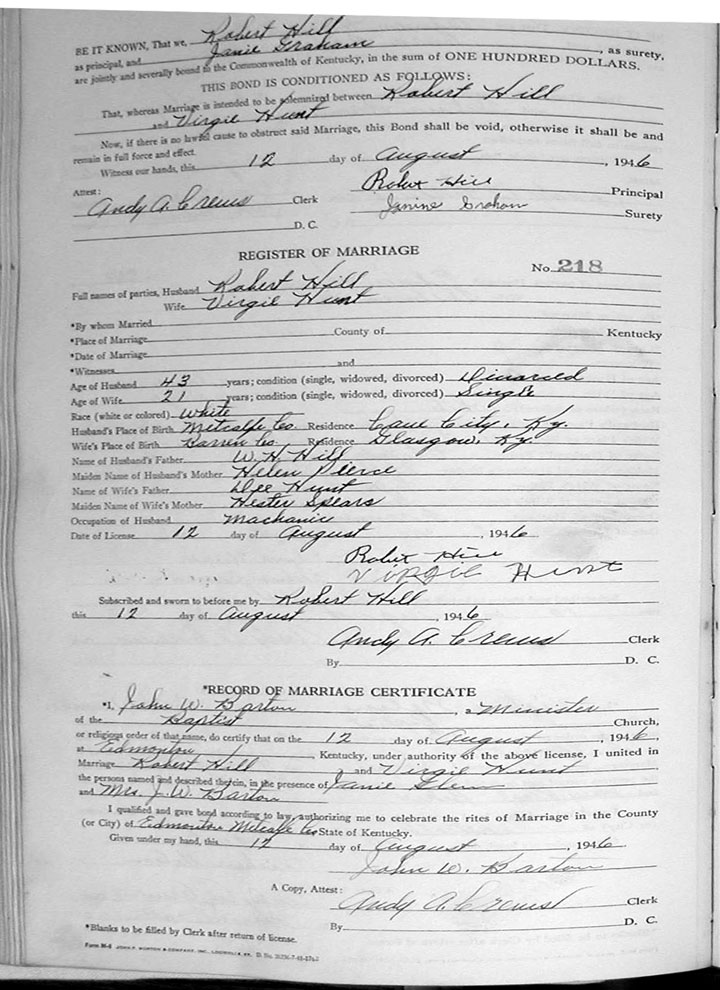 BE IT KNOWN, That we, Robert Hill
as principal, and Janie Graham, as surety,
are jointly and severally bound to the Commonwealth of Kentucky, in the sum of ONE HUNDRED DOLLARS.
THIS BOND IS CONDITIONED AS FOLLOWS:
That, whereas Marriage is intended to be solemnized between Robert Hill
and Virgie Hunt
Now, if there is no lawful cause to obstruct said Marriage, this Bond shall be void, otherwise it shall be and
remain in full force and effect.
Witness our hands, this 12 day of August, 1946
Robert Hill Principal
Attest:
Andy A. Crews Clerk
Janine Graham Surety
D. C.
REGISTER OF MARRIAGE
No. 218
Full names of parties, Husband Robert Hill
Wife Virgie Hunt
*By whom Married
*Place of Marriage County of Kentucky
*Date of Marriage
*Witnesses and
Age of Husband 43 years; condition (single, widowed, divorced) Divorced
Age of Wife 21 years; condition (single, widowed, divorced) Single
Race (white or colored) White
Husband's Place of Birth Metcalfe Co. Residence Cave City, Ky.
Wife's Place of Birth Barren Co. Residence Glasgow, Ky.
Name of Husband's Father W. H. Hill
Maiden Name of Husband's Mother Helen Pierce
Name of Wife's Father Dee Hunt
Maiden Name of Wife's Mother Hester Spears
Occupation of Husband Machanic
Date of License 12 day of August, 1946
Robert Hill
Virgie Hunt
Subscribed and sworn to before me by Robert Hill
this 12 day of August, 1946
Andy A. Crews Clerk
By D. C.
*RECORD OF MARRIAGE CERTIFICATE
*I, John W. Barton, a Minister
of the Baptist Church,
or religious order of that name, do certify that on the 12 day of August, 1946,
at Edmonton Kentucky, under authority of the above license, I united in
Marriage Robert Hill and Virgie Hunt
the persons named and described therein, in the presence of Janie
and Mrs. J. W. Barton
I qualified and gave bond according to law, authorizing me to celebrate the rites of Marriage in the County
(or City) of Edmonton Metcalfe Co State of Kentucky.
Given under my hand, this 12 day of August, 1946
John W. Barton
A Copy, Attest:
Andy A. Crews Clerk
By D. C.
*Blanks to be filled by Clerk after return of license.